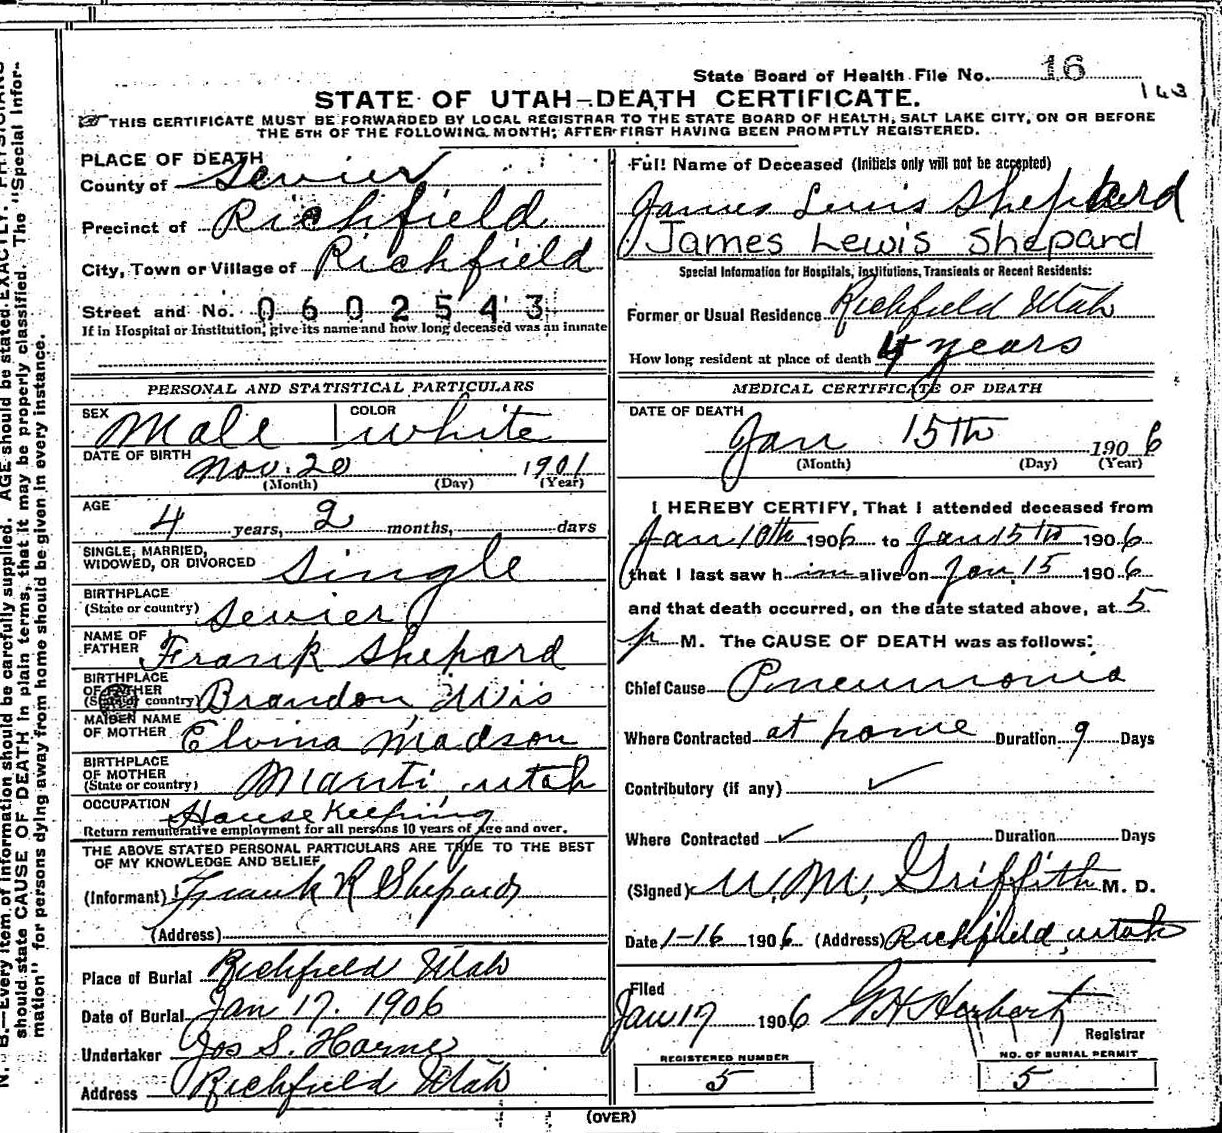 State Board of Health File No. 16
143
STATE OF UTAH—DEATH CERTIFICATE.
THIS CERTIFICATE MUST BE FORWARDED BY LOCAL REGISTRAR TO THE STATE BOARD OF HEALTH, SALT LAKE CITY, ON OR BEFORE
THE 5TH OF THE FOLLOWING MONTH; AFTER FIRST HAVING BEEN PROMPTLY REGISTERED.
PLACE OF DEATH
County of Sevier
Precinct of Richfield
City, Town or Village of Richfield
Street and No. 0602543
If in Hospital or Institution, give its name and how long deceased was an inmate
PERSONAL AND STATISTICAL PARTICULARS
SEX Male COLOR white
DATE OF BIRTH Nov. 20 1901
(Month) (Day) (Year)
AGE 4 years, 2 months, days
SINGLE, MARRIED,
WIDOWED, OR DIVORCED Single
BIRTHPLACE
(State or country) Sevier
NAME OF
FATHER Frank Shepard
BIRTHPLACE
OF FATHER
(State or country) Brandon Wis
MAIDEN NAME
OF MOTHER Elvina Madson
BIRTHPLACE
OF MOTHER
(State or country) Manti Utah
OCCUPATION House Keeping
Return remunerative employment for all persons 10 years of age and over.
THE ABOVE STATED PERSONAL PARTICULARS ARE TRUE TO THE BEST
OF MY KNOWLEDGE AND BELIEF
(Informant) Frank R Shepard
(Address)
Place of Burial Richfield Utah
Date of Burial Jan 17. 1906
Undertaker Jos S. Horne
Address Richfield Utah
Full Name of Deceased (Initials only will not be accepted)
James Lewis Shepherd
James Lewis Shepard
Special Information for Hospitals, Institutions, Transients or Recent Residents:
Former or Usual Residence Richfield Utah
How long resident at place of death 4 years
MEDICAL CERTIFICATE OF DEATH
DATE OF DEATH
Jan 15TH 1906
(Month) (Day) (Year)
I HEREBY CERTIFY, That I attended deceased from
Jan 10th 1906 to Jan 15TH 1906
that I last saw him alive on Jan. 15 1906
and that death occurred, on the date stated above, at 5
p M. The CAUSE OF DEATH was as follows:
Chief Cause Pneumonia
Where Contracted at home Duration 9 Days
Contributory (if any) ✓
Where Contracted ✓ Duration Days
(Signed) W. M. Griffith M. D.
Date 1-16 1906 (Address) Richfield, Utah
Filed
Jan 17 1906 G H Herbert
Registrar
REGISTERED NUMBER
5
NO. OF BURIAL PERMIT
5
(OVER)
N. B.—Every item of information should be carefully supplied. AGE should be stated EXACTLY. PHYSICIANS
should state CAUSE OF DEATH in plain terms, that it may be properly classified. The "Special Infor-
mation" for persons dying away from home should be given in every instance.